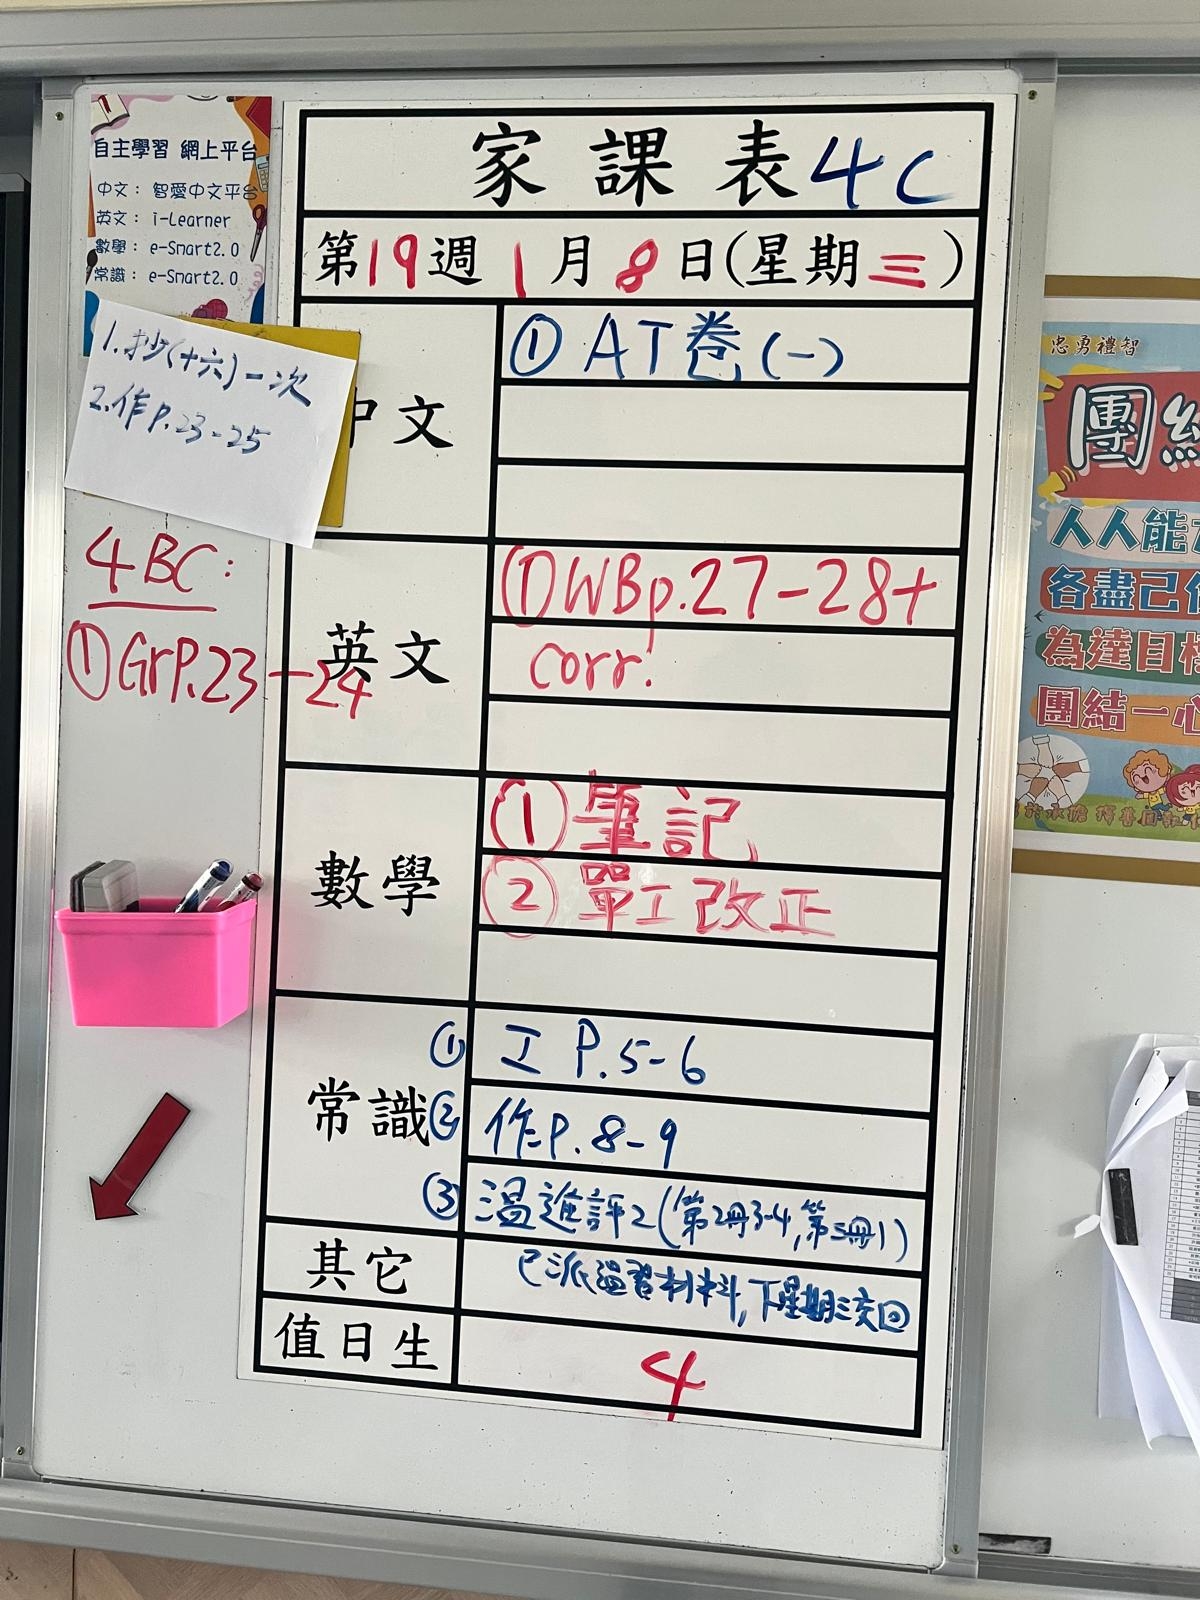 自主學習 網上平台
中文： 智愛中文平台
英文： i-Learner
數學： e-Smart2.0
常識： e-Smart2.0
1.抄(十六)一次
2.作P.23-25
4BC:
① GrP.23-24
家課表 4C
第19週 1月8日(星期三)
中文
① AT卷(一)
英文
① WBp.27-28+
corr.
數學
① 筆記
② 單工改正
常識
① 工 P.5-6
② 作P.8-9
③ 溫進評2(第2冊3-4,第三冊1)
其它
已派溫習材料,下星期三交回
值日生
4
忠勇禮智
團結
人人能
各盡己
為達目標
團結一心